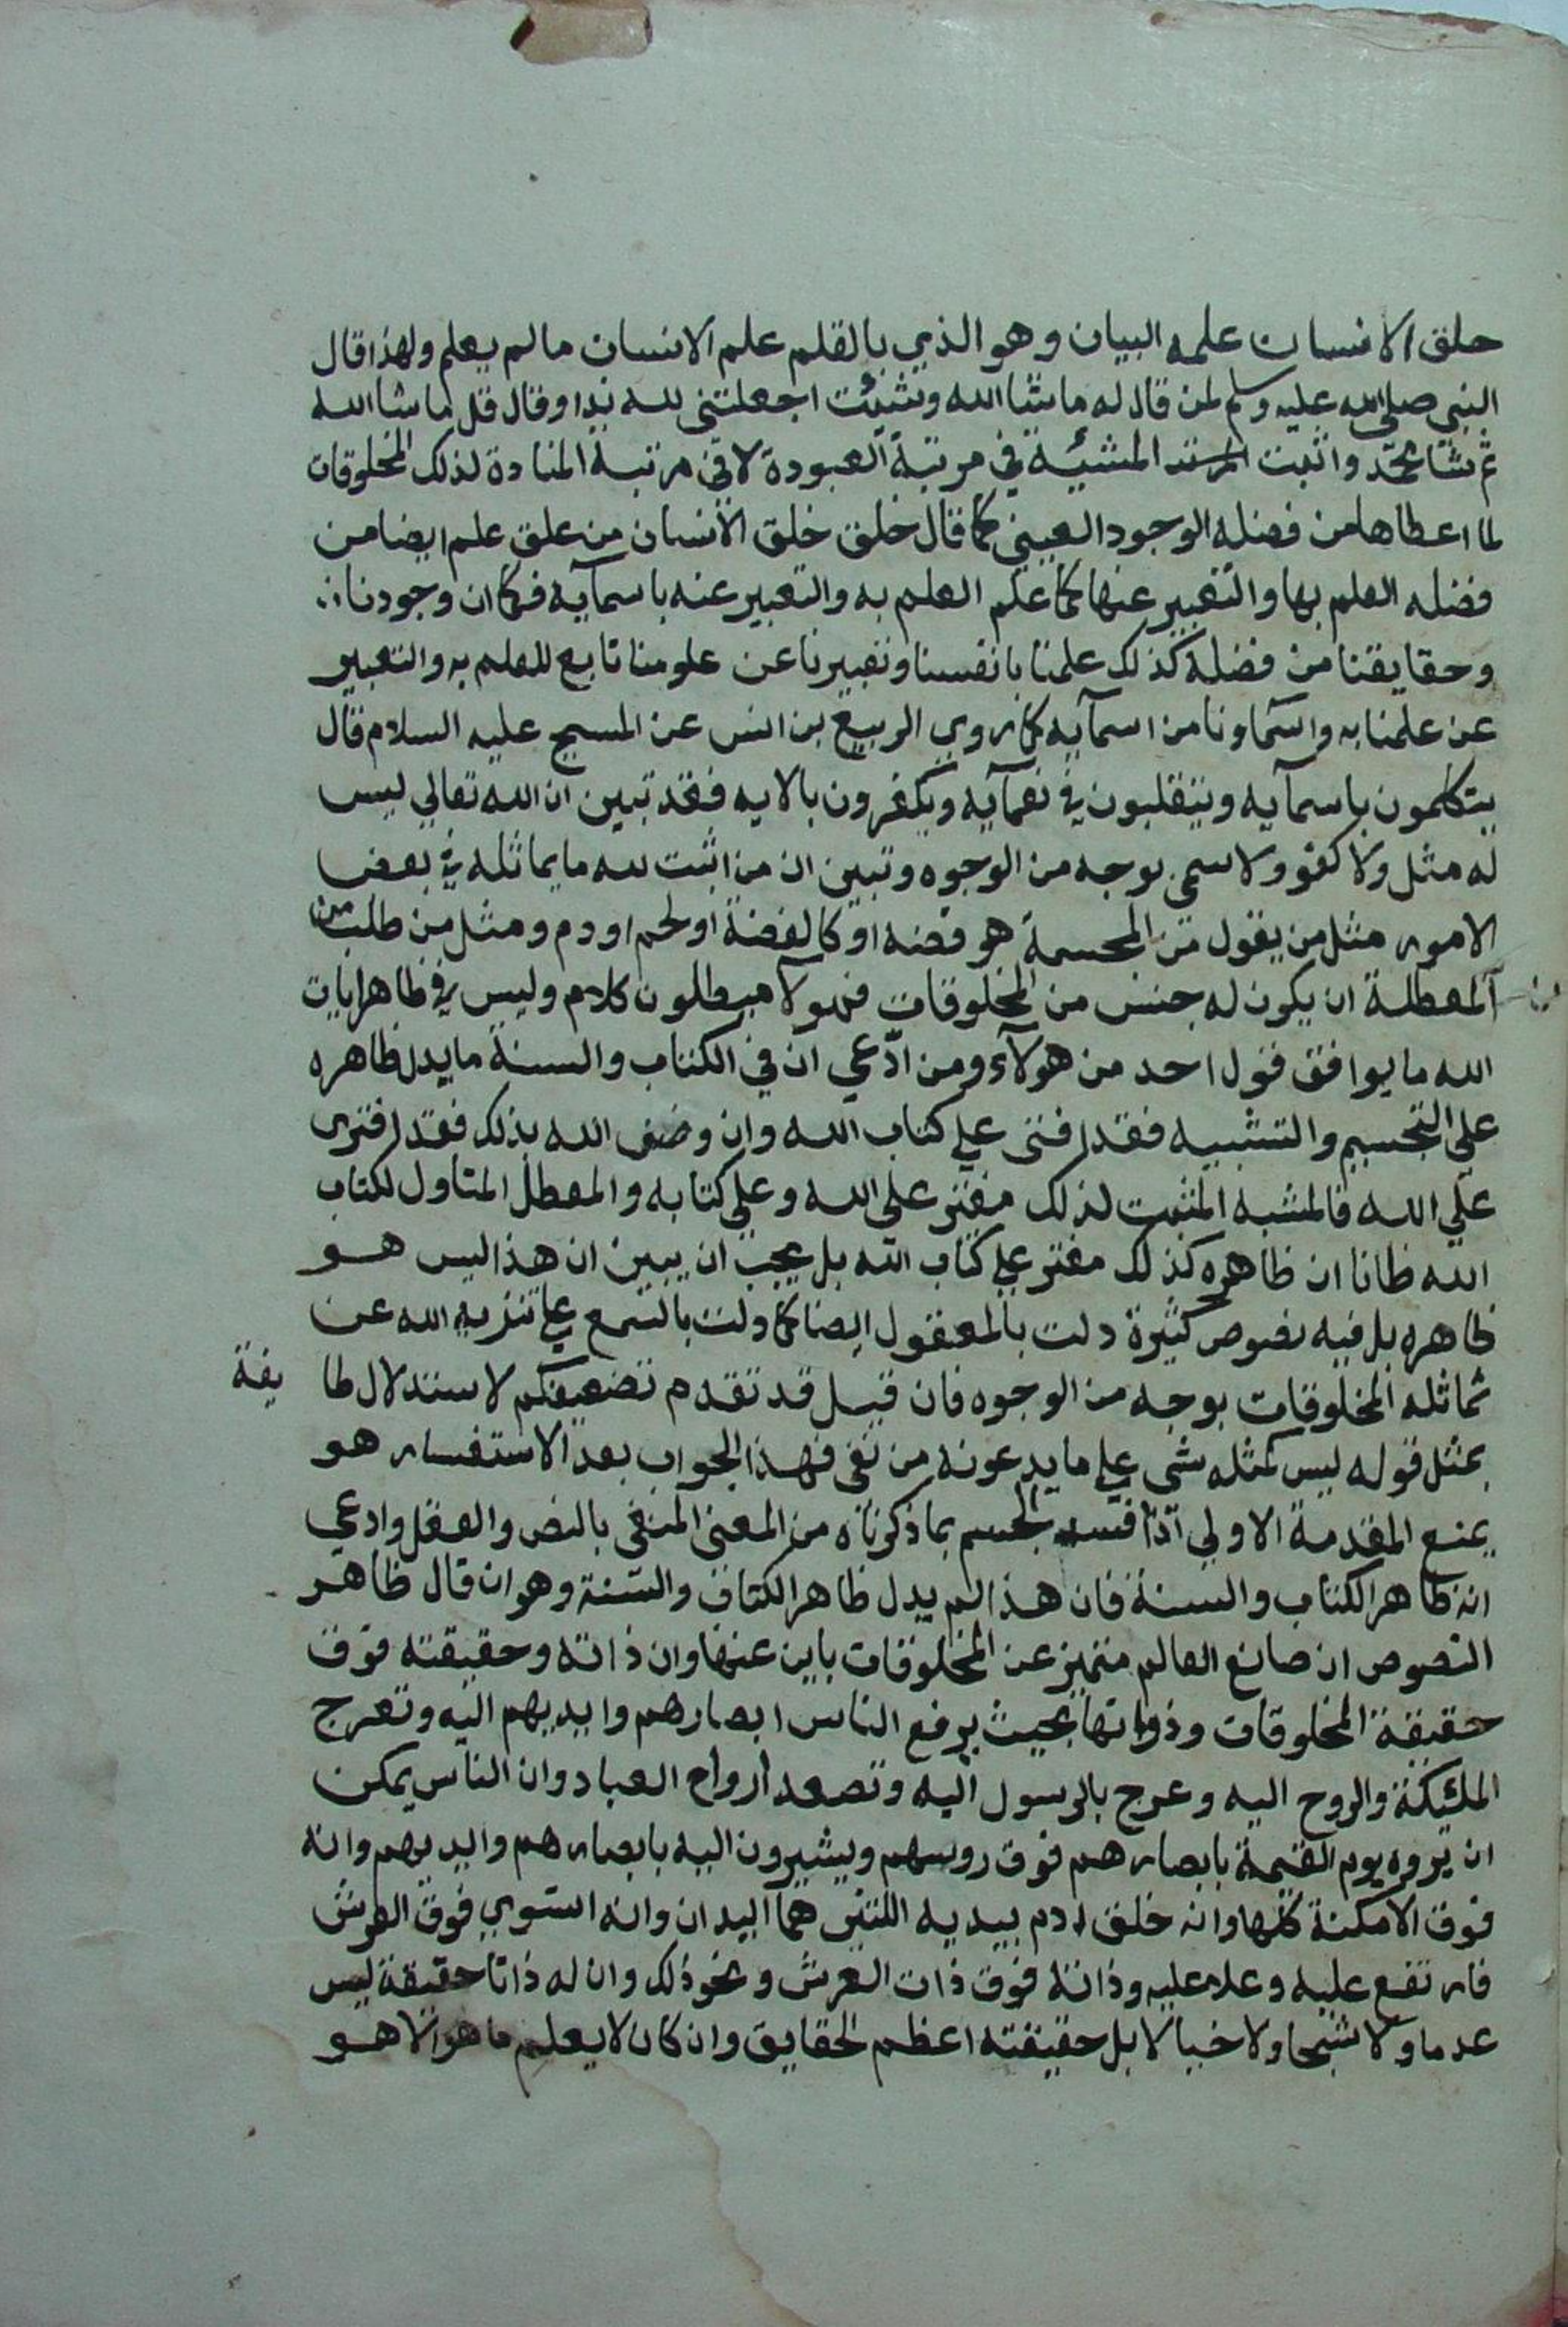 خلق الانسان علمه البيان وهو الذي بالقلم علم الانسان ما لم يعلم ولهذا قال
النبي صلى الله عليه وسلم لمن قال له ما شا الله وشئت اجعلتني لله ندا وقال قل ما شا الله
ثم شا محمد واثبت المشئية في مرتبة العبودة لا في مرتبة المنادة لذلك المخلوقات
لما اعطاها من فضله الوجود العيني كما قال خلق خلق الانسان من علق علم ايضا من
فضله العلم بها والتعبير عنها كما علم العلم به والتعبير عنه باسمآيه فكما ان وجودنا
وحقايقنا من فضله كذلك علمنا بانفسنا وتعبيرنا عن علومنا تابع للعلم به والتعبير
عن علمنا به واسماونا من اسمآيه كما روي الربيع بن انس عن المسيح عليه السلام قال
يتكلمون باسمآيه ويتقلبون في نعمآيه ويكفرون بالايه فقد تبين ان الله تعالي ليس
له مثل ولا كفو ولا سمي بوجه من الوجوه وتبين ان من اثبت لله ما يماثله في بعض
الامور مثل من يقول من المجسمة هو فضه او كالفضة او لحم او دم ومثل من طلب من
المعطلة ان يكون له جنس من المخلوقات فهولآ مبطلون كلام وليس في ظاهر ايات
الله ما يوافق قول احد من هولآء ومن ادّعي ان في الكتاب والسنة ما يدل ظاهره
علي التجسيم والتشبيه فقد افترى علي كتاب الله وان وصف الله بذلك فقد افترى
علي الله فالمشبه المثبت لذلك مفتر علي الله وعلي كتابه والمعطل المتاول لكتاب
الله ظانا ان ظاهره كذلك مفتر علي كتاب الله بل يجب ان يبين ان هذا ليس هو
ظاهره بل فيه نصوص كثيرة دلت بالمعقول ايضا كما دلت بالسمع علي تنزيه الله عن
مماثله المخلوقات بوجه من الوجوه فان قيل قد تقدم تضعيفكم لاستدلال طا يفة
بمثل قوله ليس كمثله شي علي ما يدعونه من نفي فهذا الجواب بعد الاستفسار هو
يمنع المقدمة الاولي اذا فسر الجسم بما ذكرناه من المعني المنفي بالنص والعقل وادعي
انه ظاهر الكتاب والسنة فان هذا لم يدل ظاهر الكتاب والسنة وهو ان قال ظاهر
النصوص ان صانع العالم متميز عن المخلوقات باين عنها وان ذاته وحقيقته فوق
حقيقة المخلوقات وذواتها بحيث يرفع الناس ابصارهم وايديهم اليه وتعرج
الملئيكة والروح اليه وعرج بالرسول اليه وتصعد ارواح العباد وان الناس يمكن
ان يروه يوم القيمة بابصارهم فوق روسهم ويشيرون اليه بابصارهم وايديهم وانه
فوق الامكنة كلها وانه خلق ادم بيديه اللتين هما اليدان وانه استوي فوق العرش
فارتفع عليه وعلا عليه وذاته فوق ذات العرش ونحو ذلك وان له ذاتا حقيقة ليس
عدما ولا شبحا ولا خيالا بل حقيقته اعظم الحقايق وان كان لا يعلم ما هو الا هو